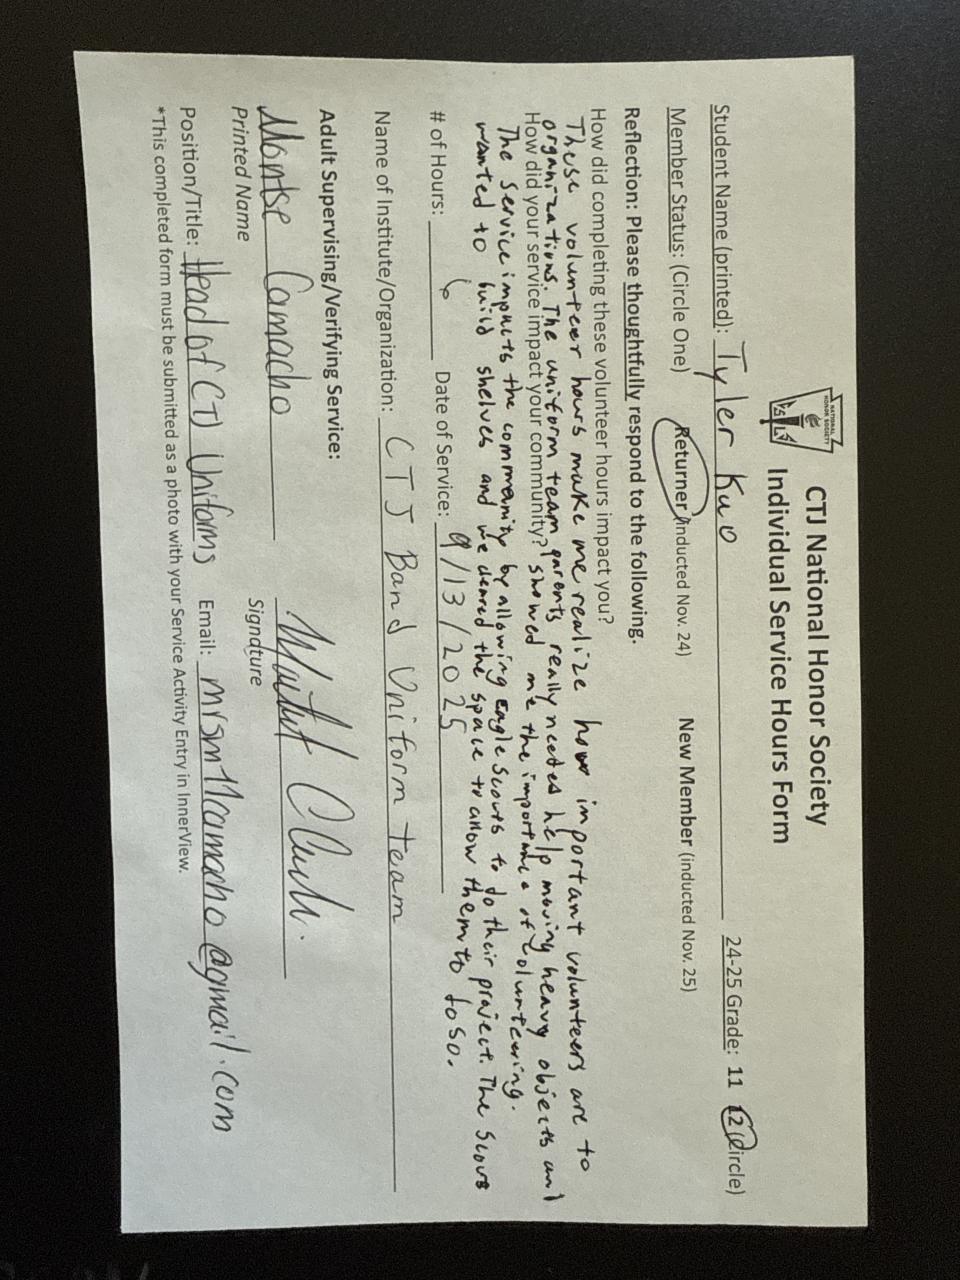 NATIONAL
HONOR SOCIETY
CTJ National Honor Society
Individual Service Hours Form
Student Name (printed): Tyler Kuo 24-25 Grade: 11 12 (Circle)
Member Status: (Circle One) Returner (inducted Nov. 24) New Member (inducted Nov. 25)
Reflection: Please thoughtfully respond to the following.
How did completing these volunteer hours impact you?
These volunteer hours make me realize how important volunteers are to
organizations. The uniform team parents really needed help moving heavy objects and
How did your service impact your community? showed me the importance of volunteering.
The service impacts the community by allowing eagle scouts to do their project. The scouts
wanted to build shelves and we cleared the space to allow them to do so.
# of Hours: 6 Date of Service: 9/13/2025
Name of Institute/Organization: CTJ Band Uniform team
Adult Supervising/Verifying Service:
Montse Camacho
Printed Name Signature
Position/Title: Head of CTJ Uniforms Email: mrsm11camacho@gmail.com
*This completed form must be submitted as a photo with your Service Activity Entry in InnerView.